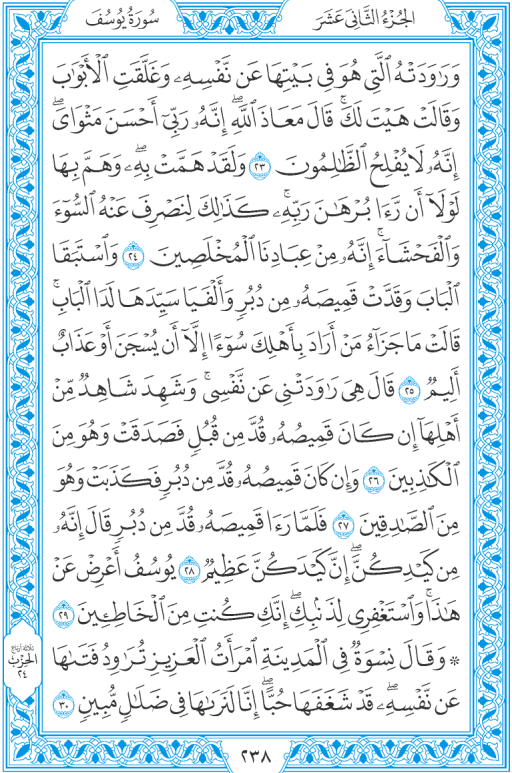 الجُزْءُ الثَّانِي عَشَرَ
سُورَةُ يُوسُفَ
وَرَٰوَدَتْهُ ٱلَّتِي هُوَ فِي بَيْتِهَا عَن نَّفْسِهِۦ وَغَلَّقَتِ ٱلْأَبْوَٰبَ
وَقَالَتْ هَيْتَ لَكَۚ قَالَ مَعَاذَ ٱللَّهِۖ إِنَّهُۥ رَبِّيٓ أَحْسَنَ مَثْوَايَۖ
إِنَّهُۥ لَا يُفْلِحُ ٱلظَّٰلِمُونَ ٢٣ وَلَقَدْ هَمَّتْ بِهِۦۖ وَهَمَّ بِهَا
لَوْلَآ أَن رَّءَا بُرْهَٰنَ رَبِّهِۦۚ كَذَٰلِكَ لِنَصْرِفَ عَنْهُ ٱلسُّوٓءَ
وَٱلْفَحْشَآءَۚ إِنَّهُۥ مِنْ عِبَادِنَا ٱلْمُخْلَصِينَ ٢٤ وَٱسْتَبَقَا
ٱلْبَابَ وَقَدَّتْ قَمِيصَهُۥ مِن دُبُرٍ وَأَلْفَيَا سَيِّدَهَا لَدَا ٱلْبَابِۚ
قَالَتْ مَا جَزَآءُ مَنْ أَرَادَ بِأَهْلِكَ سُوٓءًا إِلَّآ أَن يُسْجَنَ أَوْ عَذَابٌ
أَلِيمٌ ٢٥ قَالَ هِيَ رَٰوَدَتْنِي عَن نَّفْسِيۚ وَشَهِدَ شَاهِدٌ مِّنْ
أَهْلِهَآ إِن كَانَ قَمِيصُهُۥ قُدَّ مِن قُبُلٍ فَصَدَقَتْ وَهُوَ مِنَ
ٱلْكَٰذِبِينَ ٢٦ وَإِن كَانَ قَمِيصُهُۥ قُدَّ مِن دُبُرٍ فَكَذَبَتْ وَهُوَ
مِنَ ٱلصَّٰدِقِينَ ٢٧ فَلَمَّا رَءَا قَمِيصَهُۥ قُدَّ مِن دُبُرٍ قَالَ إِنَّهُۥ
مِن كَيْدِكُنَّۖ إِنَّ كَيْدَكُنَّ عَظِيمٌ ٢٨ يُوسُفُ أَعْرِضْ عَنْ
هَٰذَاۚ وَٱسْتَغْفِرِي لِذَنۢبِكِۖ إِنَّكِ كُنتِ مِنَ ٱلْخَاطِـِٔينَ ٢٩
۞ وَقَالَ نِسْوَةٌ فِي ٱلْمَدِينَةِ ٱمْرَأَتُ ٱلْعَزِيزِ تُرَٰوِدُ فَتَىٰهَا
عَن نَّفْسِهِۦۖ قَدْ شَغَفَهَا حُبًّاۖ إِنَّا لَنَرَىٰهَا فِي ضَلَٰلٍ مُّبِينٍ ٣٠
ثلاثة أرباع
الحزب
٢٤
٢٣٨